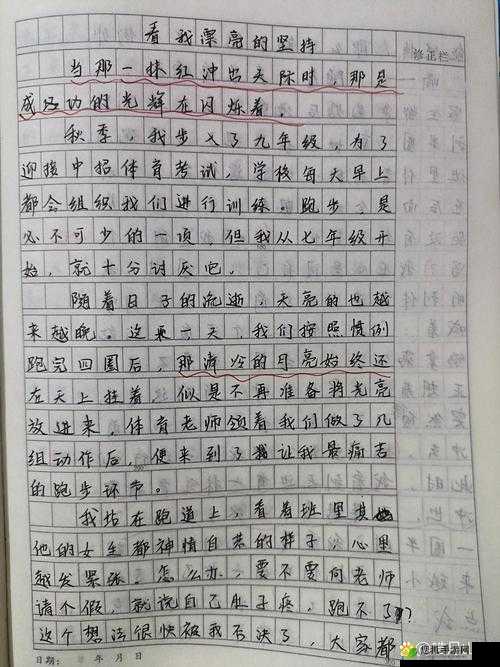 看我漂亮的坚持
修正栏
当那一抹红冲出天际时，那是
成功的光辉在闪烁着。
秋季，我步入了九年级，为了
迎接中招体育考试，学校每天早上
都会组织我们进行训练。跑步，是
必不可少的一项，但我从七年级开
始，就十分讨厌它。
随着日子的流逝，天亮的也越
来越晚。这一天，我们按照惯例
跑完四圈后，那清冷的月亮始终还
在天上挂着，似是不再准备将光亮
放进来，体育老师领着我们做了几
组动作后，便来到了让我最痛苦
的跑步环节。
我站在跑道上，看着班里其
他的女生都神情自若的样子，心里
越发紧张。怎么办，要不要向老师
请个假，就说自己肚子疼，跑不了？
这个想法很快被我否决了，大家都
日期： 年 月 日